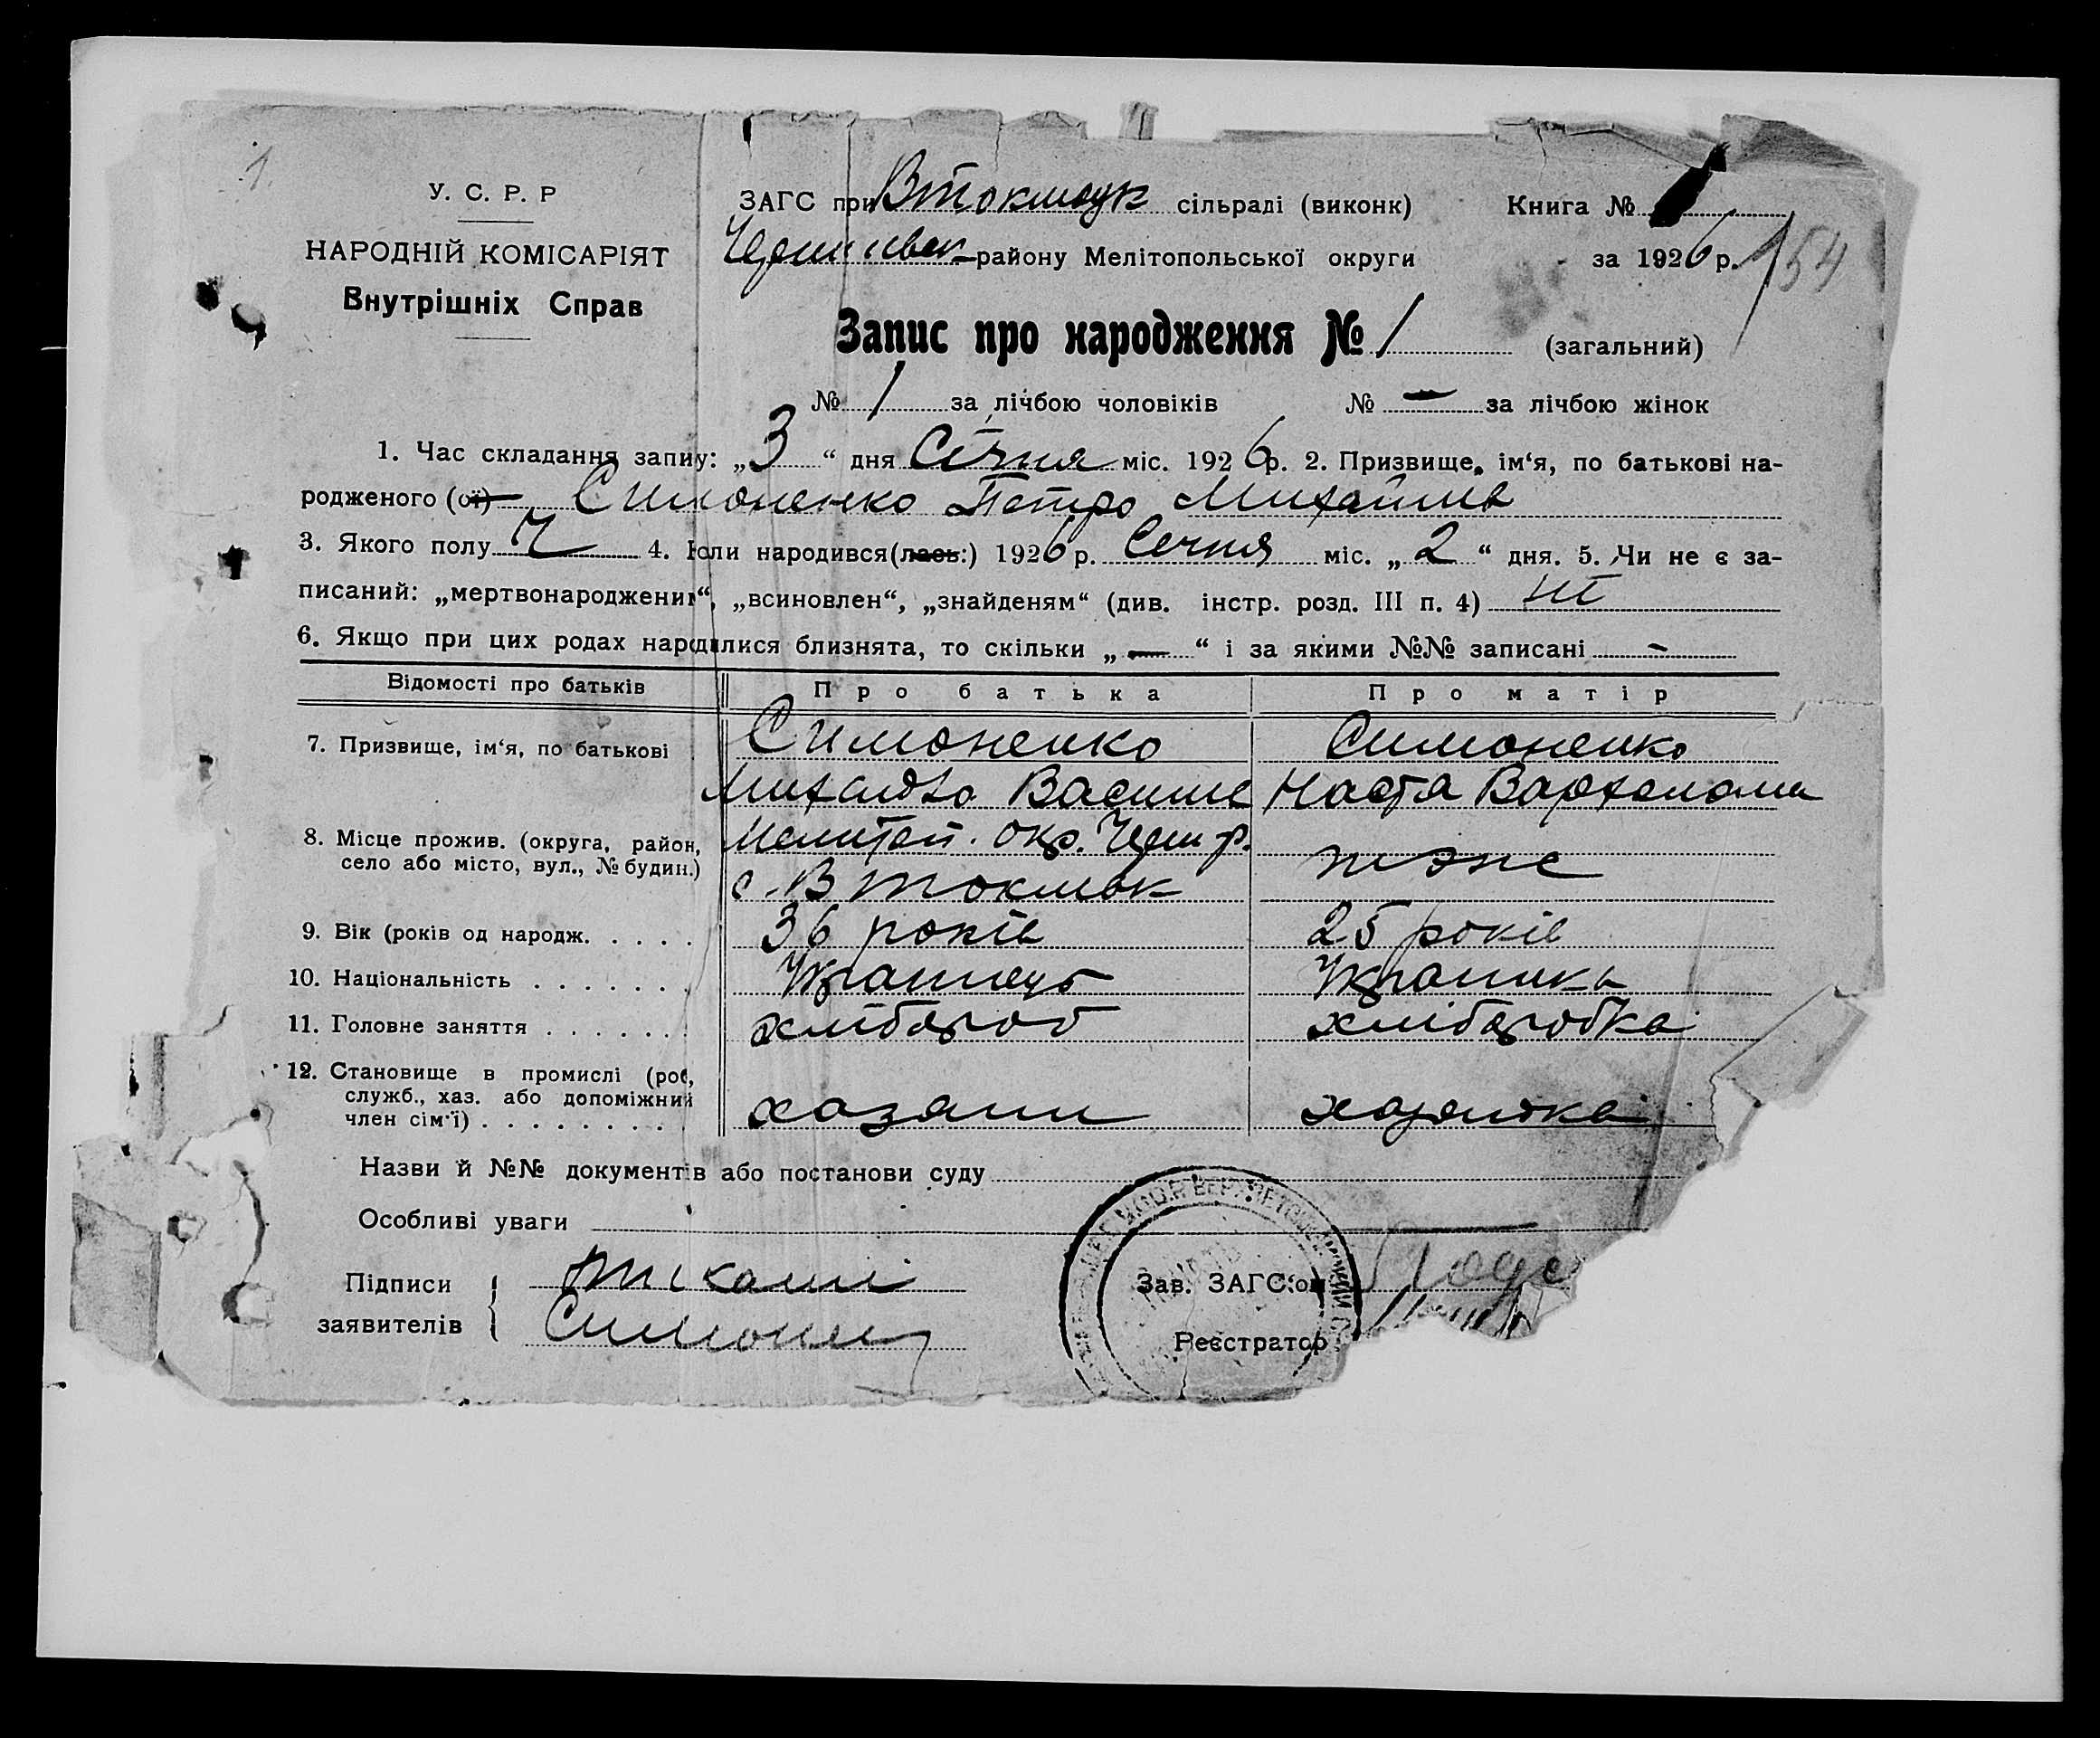 1.
У. С. Р. Р
НАРОДНІЙ КОМІСАРІЯТ
Внутрішніх Справ
ЗАГС при Втокмацк сільраді (виконк) Книга №
району Мелітопольської округи за 1926 р. 154
Запис про народження № 1 (загальний)
№ 1 за лічбою чоловіків № — за лічбою жінок
1. Час складання запису: „3“ дня Січня міс. 1926 р. 2. Призвище, ім‘я, по батькові на-
родженого (ої) Симоненко Петро Михайлів
3. Якого полу Ч 4. Коли народився(лась:) 1926 р. Сечня міс. „2“ дня. 5. Чи не є за-
писаний: „мертвонароджений“, „всиновлен“, „знайденям“ (див. інстр. розд. III п. 4) ні
6. Якщо при цих родах народилися близнята, то скільки „—“ і за якими №№ записані -
Відомості про батьків Про батька Про матір
7. Призвище, ім‘я, по батькові Симоненко Симоненко
Михайло Василів Настя Вархолом
8. Місце прожив. (округа, район, село або місто, вул., № будин.) Мелитоп. окр. Черн р. тоже
с. В токмак
9. Вік (років од народж. 36 років 25 років
10. Національність Українець Українка
11. Головне заняття хлібороб хліборобка
12. Становище в промислі (роб, служб., хаз. або допоміжний член сім‘ї) хазяин хазяйка
Назви й №№ документів або постанови суду
Особливі уваги
Підписи заявителів
Зав. ЗАГС‘ом
Реєстратор